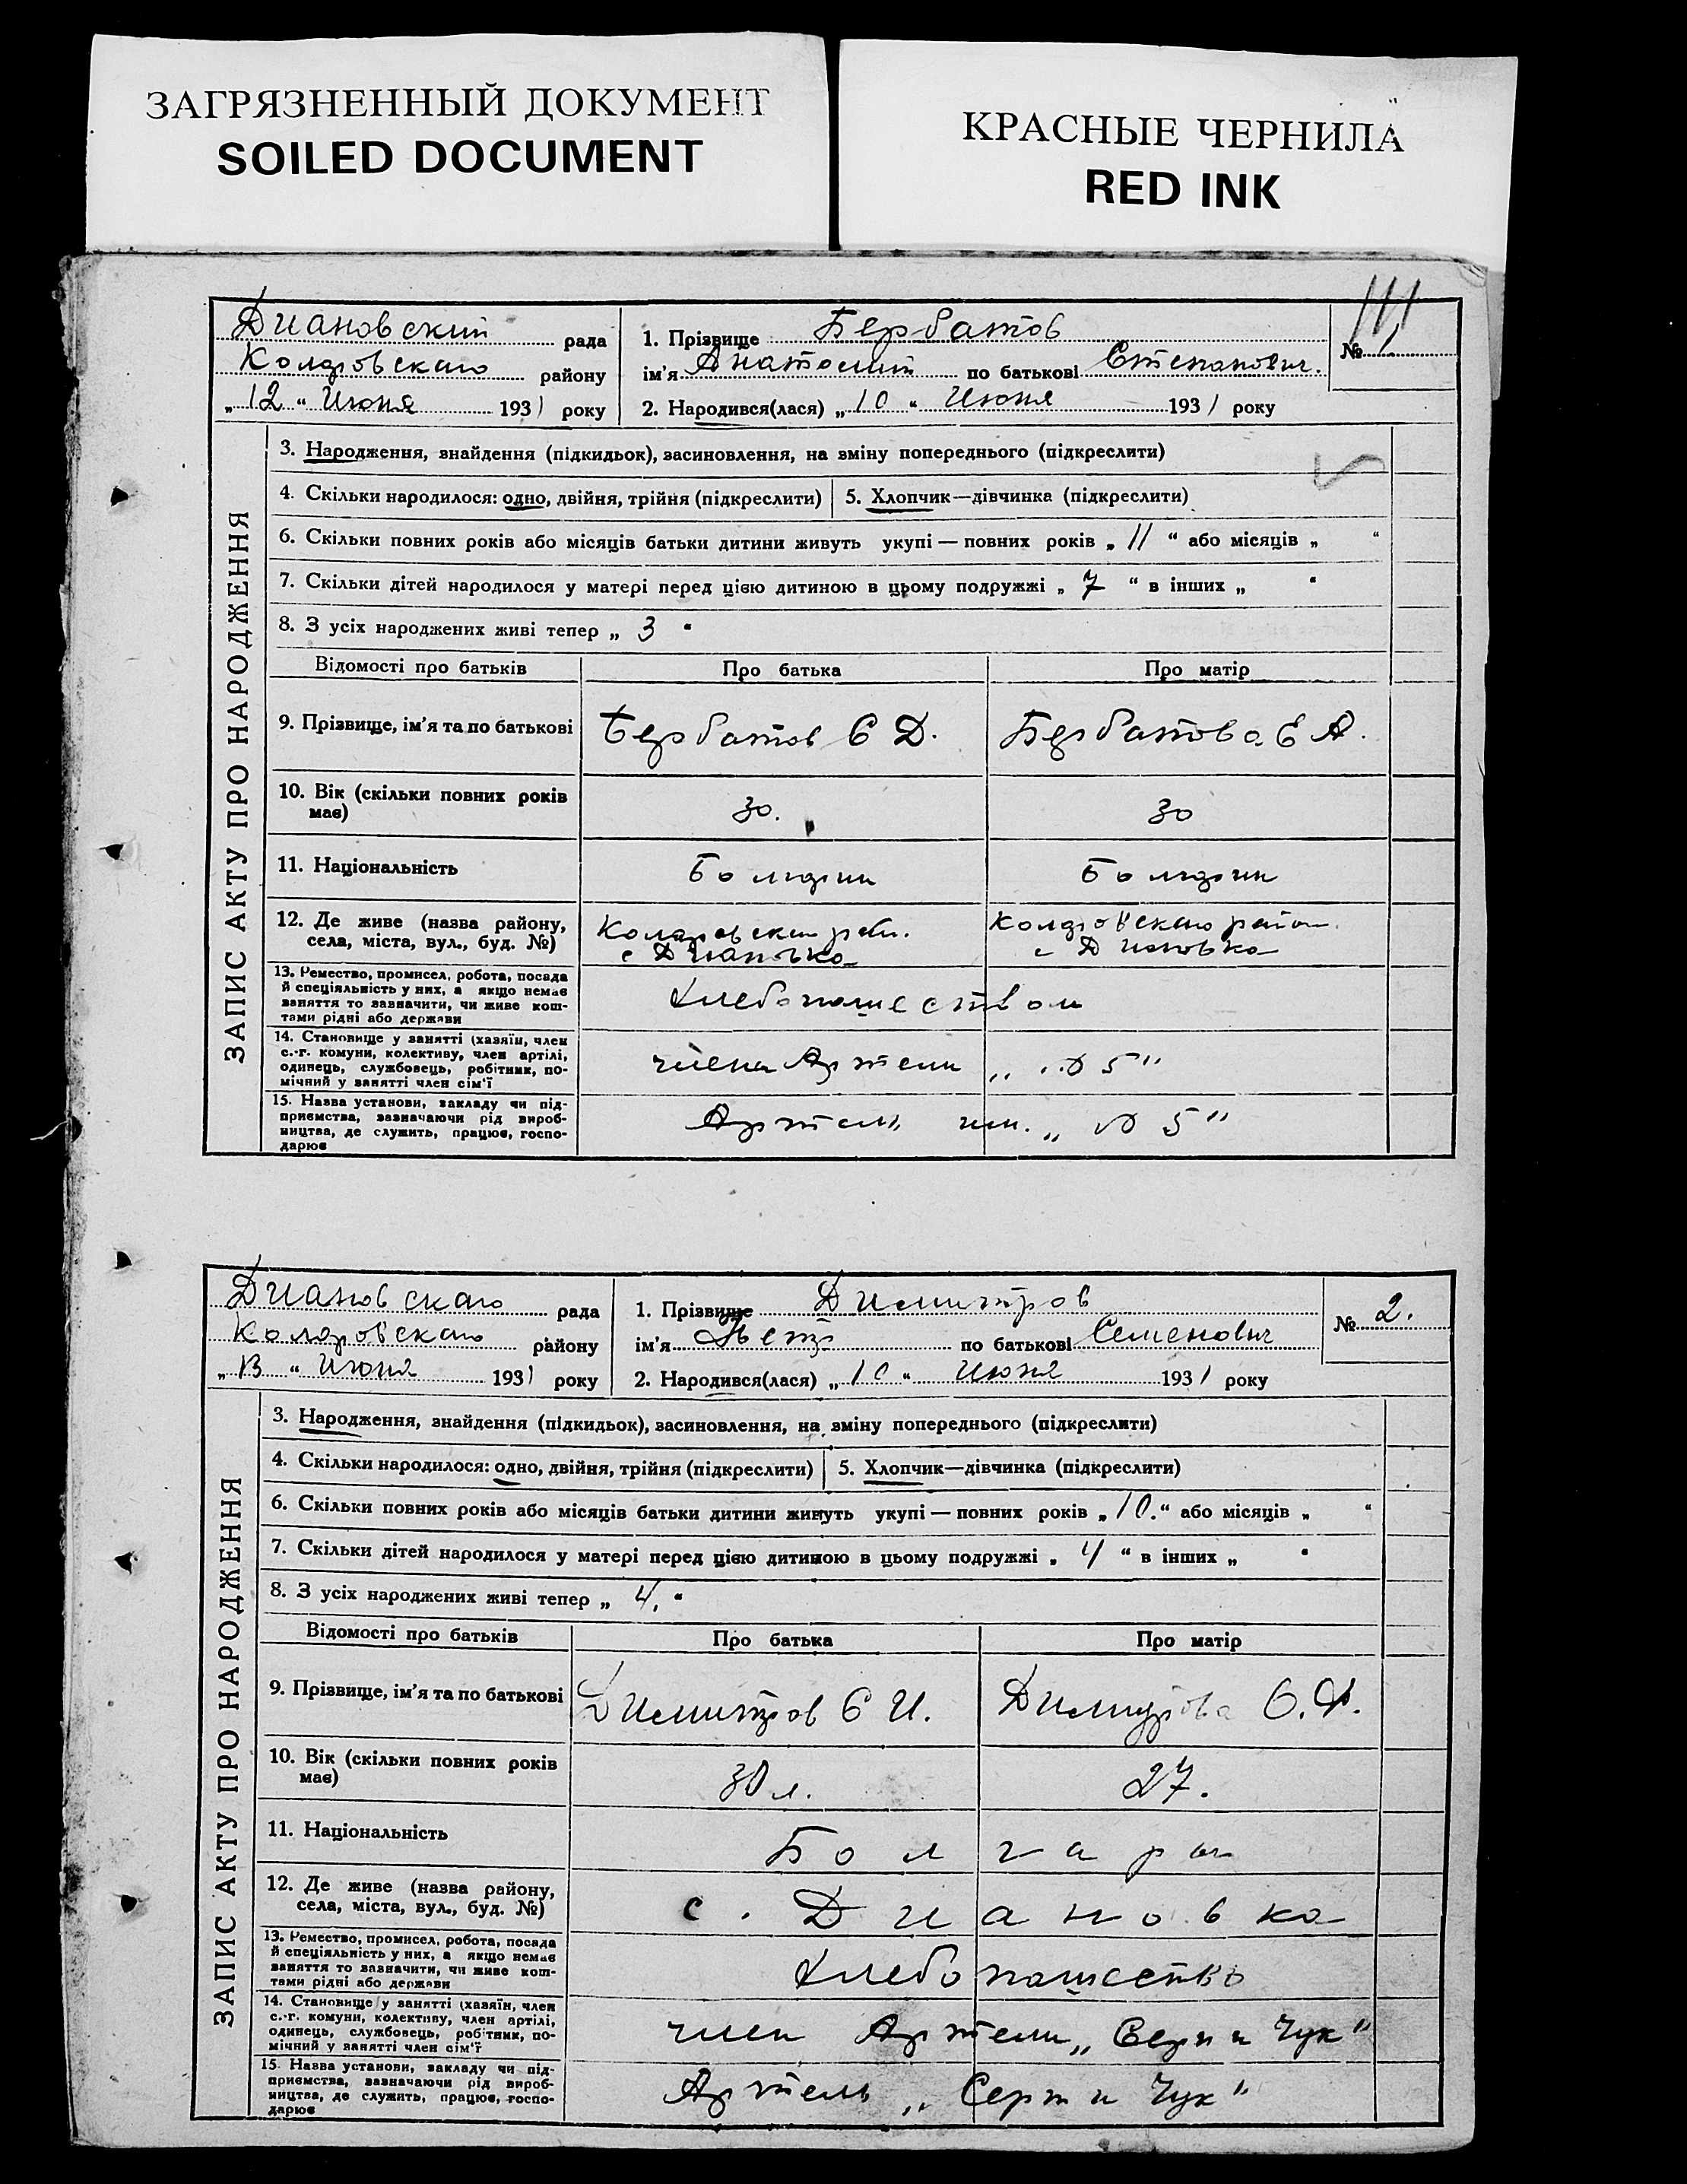 ЗАГРЯЗНЕННЫЙ ДОКУМЕНТ
SOILED DOCUMENT
КРАСНЫЕ ЧЕРНИЛА
RED INK
Диановский рада
Коларовскаго району
„12“ Июня 1931 року
1. Прізвище Бербатов
ім'я Анатолий по батькові Степанович.
2. Народився(лася) „10“ Июня 1931 року
№ 1.
ЗАПИС АКТУ ПРО НАРОДЖЕННЯ
3. Народження, знайдення (підкидьок), засиновлення, на зміну попереднього (підкреслити)
4. Скільки народилося: одно, двійня, трійня (підкреслити) 5. Хлопчик—дівчинка (підкреслити)
6. Скільки повних років або місяців батьки дитини живуть укупі — повних років „11“ або місяців „ “
7. Скільки дітей народилося у матері перед цією дитиною в цьому подружжі „7“ в інших „ “
8. З усіх народжених живі тепер „3“
Відомості про батьків Про батька Про матір
9. Прізвище, ім'я та по батькові Бербатов С Д. Бербатова Е А.
10. Вік (скільки повних років має) 30. 30
11. Національність Болгарин Болгарин
12. Де живе (назва району, Коларовский район. Коларовскаго район.
села, міста, вул., буд. №) с Диановка с Диановка
13. Ремество, промисел, робота, посада
й спеціяльність у них, а якщо немає
заняття то зазначити, чи живе кош-
тами рідні або держави
Хлебопашеством
14. Становище у занятті (хазяїн, член
с.-г. комуни, колективу, член артілі,
одинець, службовець, робітник, по-
мічний у занятті член сім'ї
члена Артели „ в 5“
15. Назва установи, закладу чи під-
приємства, зазначаючи рід вироб-
ництва, де служить, працює, госпо-
дарює
Артель им. „ в 5“
Диановскаго рада
Коларовскаго району
„13“ Июня 1931 року
1. Прізвище Димитров
ім'я Петр по батькові Семенович
2. Народився(лася) „10“ Июня 1931 року
№ 2.
ЗАПИС АКТУ ПРО НАРОДЖЕННЯ
3. Народження, знайдення (підкидьок), засиновлення, на зміну попереднього (підкреслити)
4. Скільки народилося: одно, двійня, трійня (підкреслити) 5. Хлопчик—дівчинка (підкреслити)
6. Скільки повних років або місяців батьки дитини живуть укупі — повних років „10.“ або місяців „ “
7. Скільки дітей народилося у матері перед цією дитиною в цьому подружжі „4“ в інших „ “
8. З усіх народжених живі тепер „4.“
Відомості про батьків Про батька Про матір
9. Прізвище, ім'я та по батькові Димитров С И. Димитрова О. Ф.
10. Вік (скільки повних років має) 30 л. 27.
11. Національність Болгары
12. Де живе (назва району,
села, міста, вул., буд. №)
с. Диановка
13. Ремество, промисел, робота, посада
й спеціяльність у них, а якщо немає
заняття то зазначити, чи живе кош-
тами рідні або держави
Хлебопашество
14. Становище у занятті (хазяїн, член
с.-г. комуни, колективу, член артілі,
одинець, службовець, робітник, по-
мічний у занятті член сім'ї
член Артели „Серп и Чук“
15. Назва установи, закладу чи під-
приємства, зазначаючи рід вироб-
ництва, де служить, працює, госпо-
дарює
Артель „Серп и Чук“